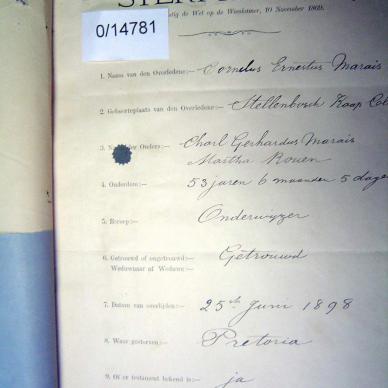 0/14781
de Wet op de Weeskamer, 10 November 1869.
1. Naam van den Overledene:— Cornelus Ernestus Marais
2. Geboorteplaats van den Overledene:— Stellenbosch Kaap
3. Ouders:— Charl Gerhardus Marais
Martha Rouen
4. Ouderdom:— 53 jaren 6 maanden 5 dagen
5. Beroep:— Onderwyzer
6. Getrouwd of ongetrouwd:— Getrouwd
Weduwnaar of Weduwe:—
7. Datum van overlijden:— 25th Juni 1898
8. Waar gestorven:— Pretoria
9. Of er testament bekend is:— ja